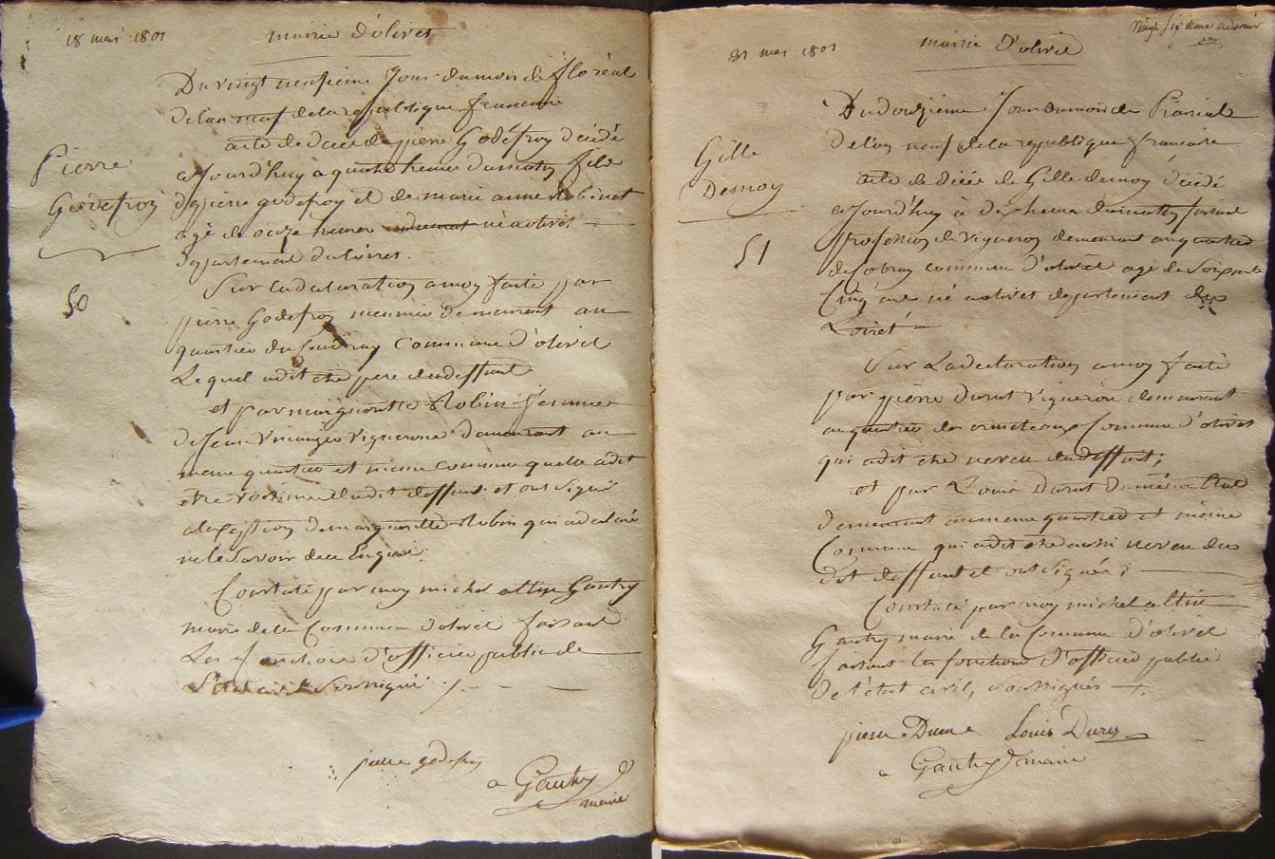 18 mai 1801
mairie d'olivet
Du vingt neufieme Jour du mois de floréal
de l'an neuf de la république francaise
acte de décée de pierre Godefroy décédé
aujourd'huy a quatre heures du matin fils
de pierre godefroy et de marie anne Robinet
agé de onze heures né a olivet
departement du loiret.
Pierre
Godefroy
50
Sur la declaration a moy faite par
pierre Godefroy meunier demeurant au
quartier du commune d'olivet
Lequel a dit etre pere du deffunt
et par margueritte Robin femme
de Jean vigneronne demeurant au
meme quartier et meme commune quelle a dit
etre voisine du dit deffunt et ont signé
a lexception de margueritte Robin qui a declaré
ne le savoir de ce Enquis.
Constaté par moy michel Gautry
maire de la Commune d'olivet faisant
Les fonctions d'officier public de
L'état civil Soussigné
pierre godefroy
Gautry
maire
31 mai 1801
mairie d'olivet
Du douzieme Jour du mois de Prairial
de l'an neuf de la republique francaise
acte de décée de Gille demoy décédé
aujourd'huy à dix heures du matin
profession de vigneron demeurant au quartier
de commune d'olivet agé de Soixante
Cinq ans né a olivet departement du
Loiret
Gille
Demoy
51
Sur La declaration a moy faite
par pierre vigneron demeurant
au quartier des Commune d'olivet
qui a dit etre neveu du deffunt;
et par Louis
demeurant au meme quartier et méme
Commune qui a dit etre aussi neveu du
dit deffunt et ont signés;
Constaté par moy michel
Gautry maire de la Commune d'olivet
faisant les fonctions d'officier public
de l'état civil, soussignés
pierre Louis
Gautry maire